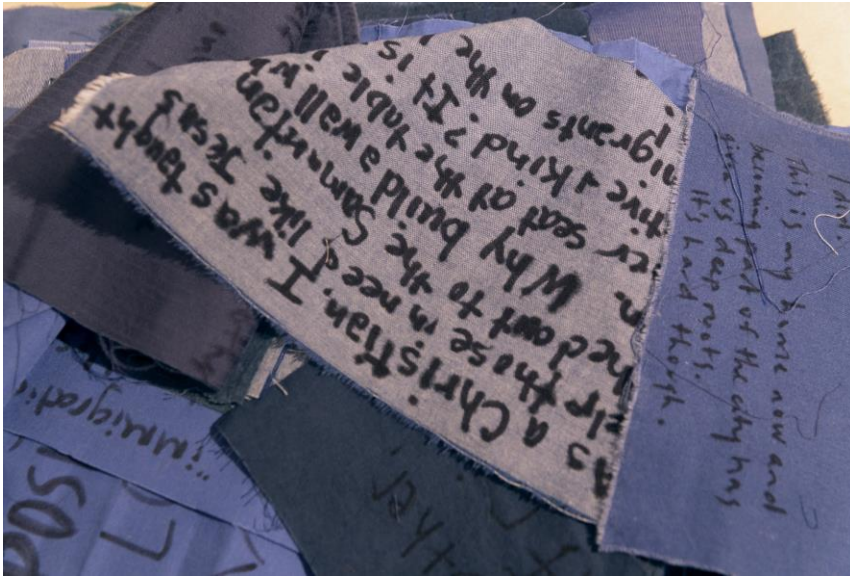 as a Christian. I was taught
elp those in need like Jesus
hed out to the Samaritan
n. Why build a wall wh
er seat at the table
tive + kind? It is
nigrants on the
This is my home now and
becoming part of the city has
given us deep roots.
It's hard though.
"immigrati